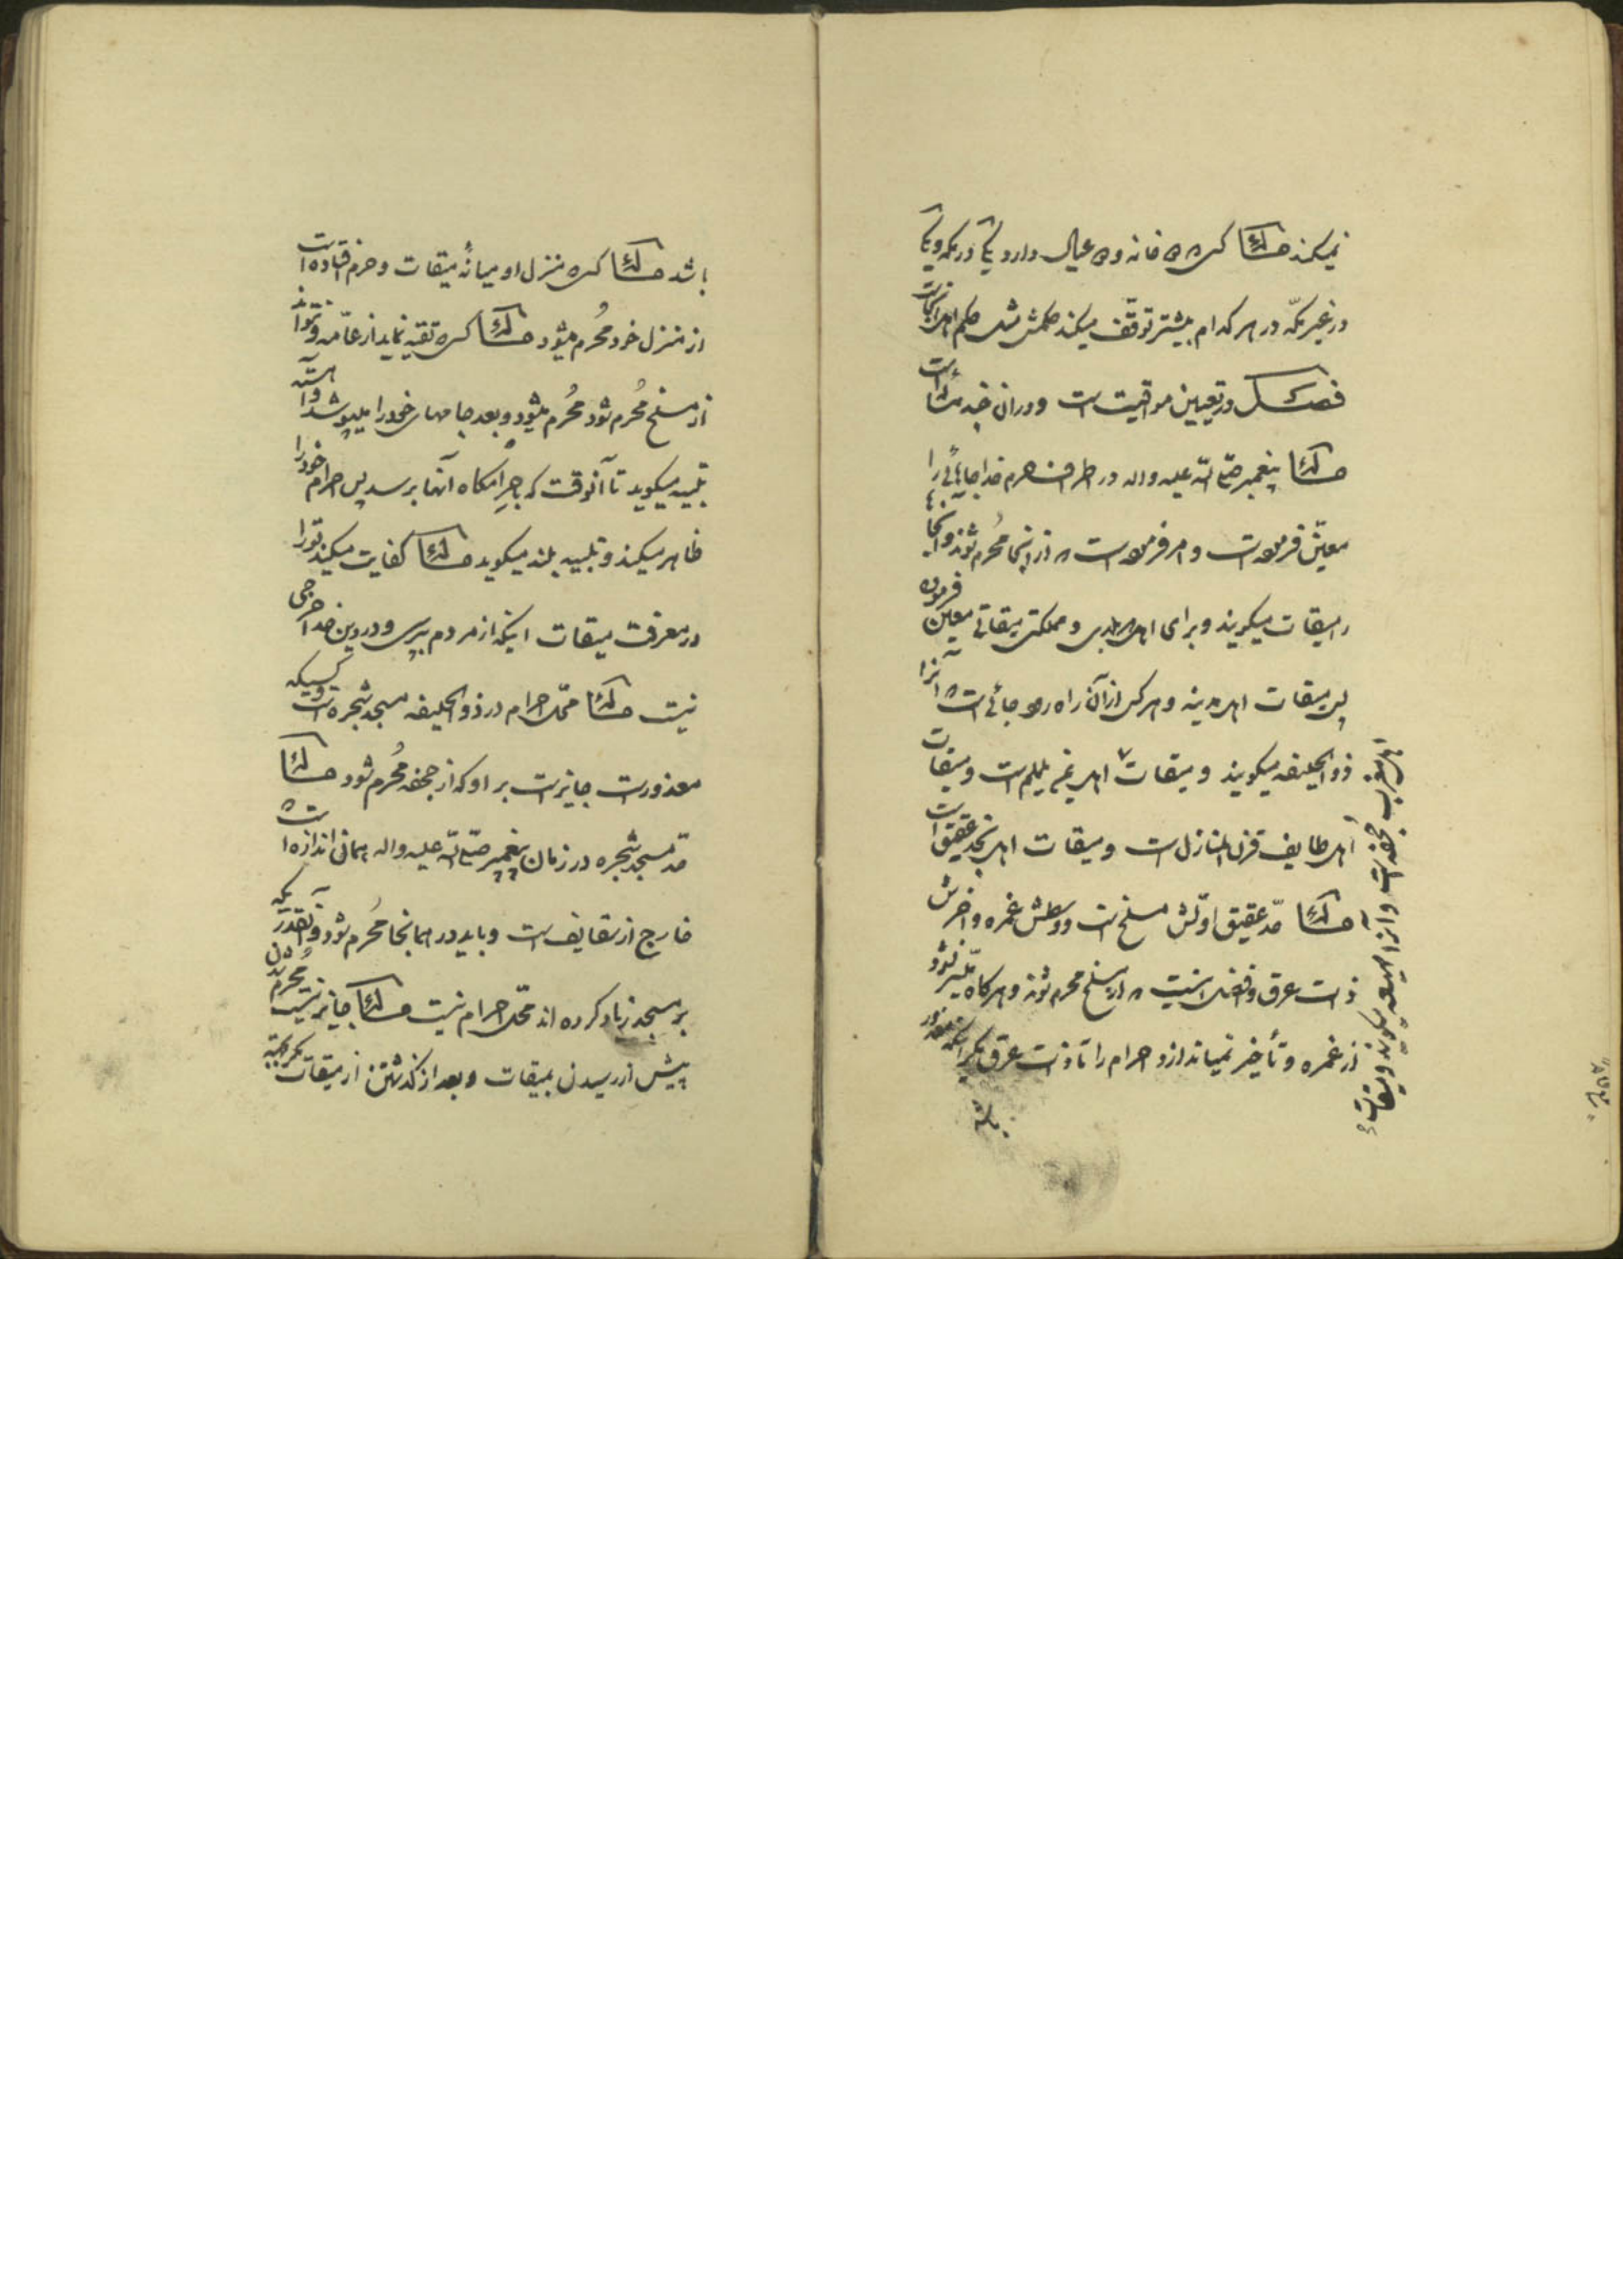 نمیکند مسئله کسیکه دو خانه و دو عیال دارد یکی در مکه و یکی
در غیر مکّه در هر کدام بیشتر توقّف میکند حکمش مثل حکم اهل آنجاست
فصل در تعیین مواقیت است و در آن چند مسئله است
مسئله پیغمبر صلّی اللّه علیه واله در اطراف حرم خدا جاهائی را
معیّن فرموده است و امر فرموده است که از آنجا مُحرم شوند و آنجاها
را میقات میگویند و برای اهل هر بلدی و مملکتی میقاتی معین فرموده
پس میقات اهل مدینه و هر کس از آن راه رود جائی است که آنرا
ذوالحلیفه میگویند و میقات اهل یمن یلملم است و میقات
اهل طایف قرن المنازل است و میقات اهل نجد عقیق است
مسئله حدّ عقیق اوّلش مسلخ است و وسطش غمره و اخرش
ذات عرق و افضل اینست که از مسلخ محرم شوند و هرگاه میسّر نشود
از غمره و تأخیر نمیاندازد احرام را تا ذات عرق مگر اینکه معذور
باشد
اهل مغرب جحفه است و آنرا مهیعه میگویند و میقات
باشد مسئله کسیکه منزل او میانهٔ میقات و حرم افتاده است
از منزل خود مُحرم میشود مسئله کسیکه تقیه نماید از عامّه و نتواند
از مسلخ مُحرم شود مُحرم میشود و بعد جامهای خود را میپوشد و آهسته
تلبیه میگوید تا آنوقت که باحرامگاه آنها برسد پس احرام خود را
ظاهر میکند و تلبیه بلند میگوید مسئله کفایت میکند تو را
در معرفت میقات اینکه از مردم بپرسی و در دین خدا حرجی
نیست مسئله محّل احرام در ذوالحلیفه مسجد شجره است و کسیکه
معذور است جایز است بر او که از جحفه مُحرم شود مسئله
حدّ مسجد شجره در زمان پیغمبر صلّی اللّه علیه واله بهمان اندازه است که
خارج از سقایف است و باید در همانجا مُحرم شود و آنقدر که
بر مسجد زیاد کرده اند محّل احرام نیست مسئله جایز نیست مُحرم شدن
پیش از رسیدن بمیقات و بعد از گذشتن از میقات مگر اینکه